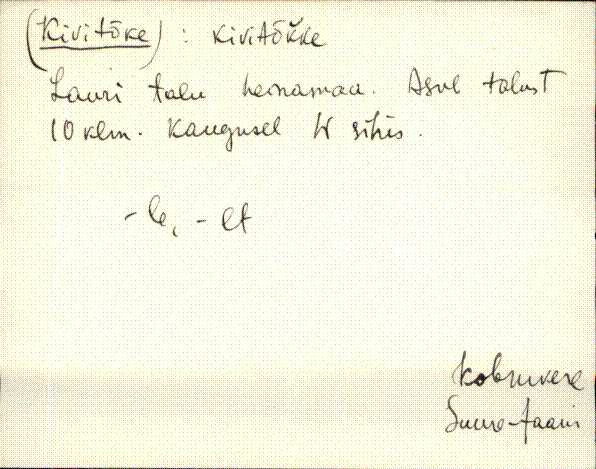 (Kivitõke) : kivitõk̆ke
Lauri talu heinamaa. Asub talust
10 klm. kaugusel W sihis.
-le, -lt
Kobruvere
Suure-Jaani